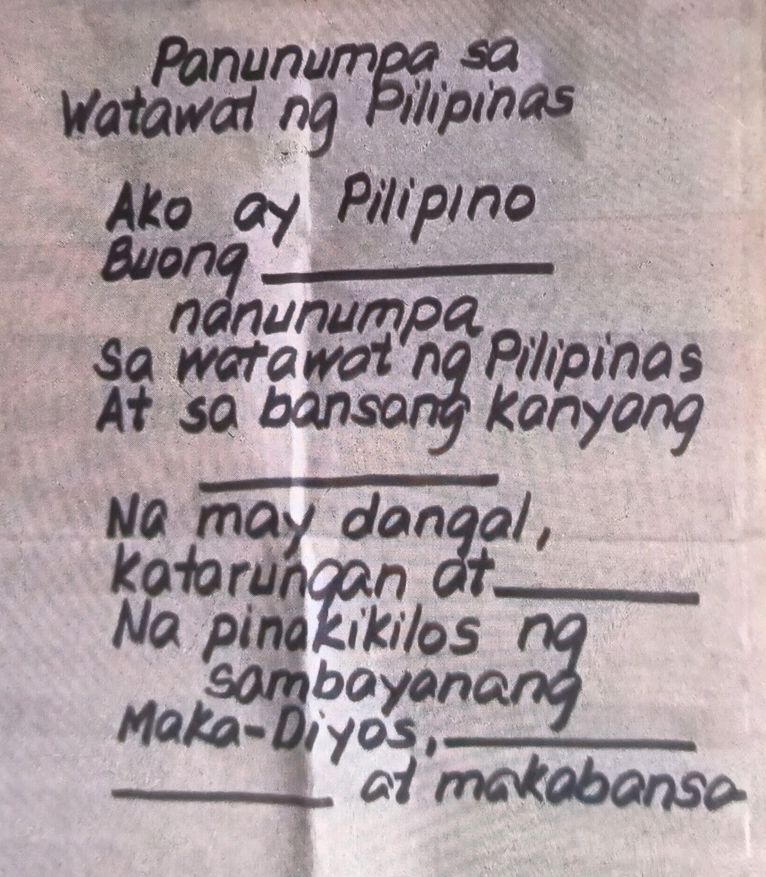 Panunumpa sa
Watawat ng Pilipinas
Ako ay Pilipino
Buong __________
nanunumpa
Sa watawat ng Pilipinas
At sa bansang kanyang
__________
Na may dangal,
katarungan at __________
Na pinakikilos ng
sambayanang
Maka-Diyos, __________
__________ at makabansa